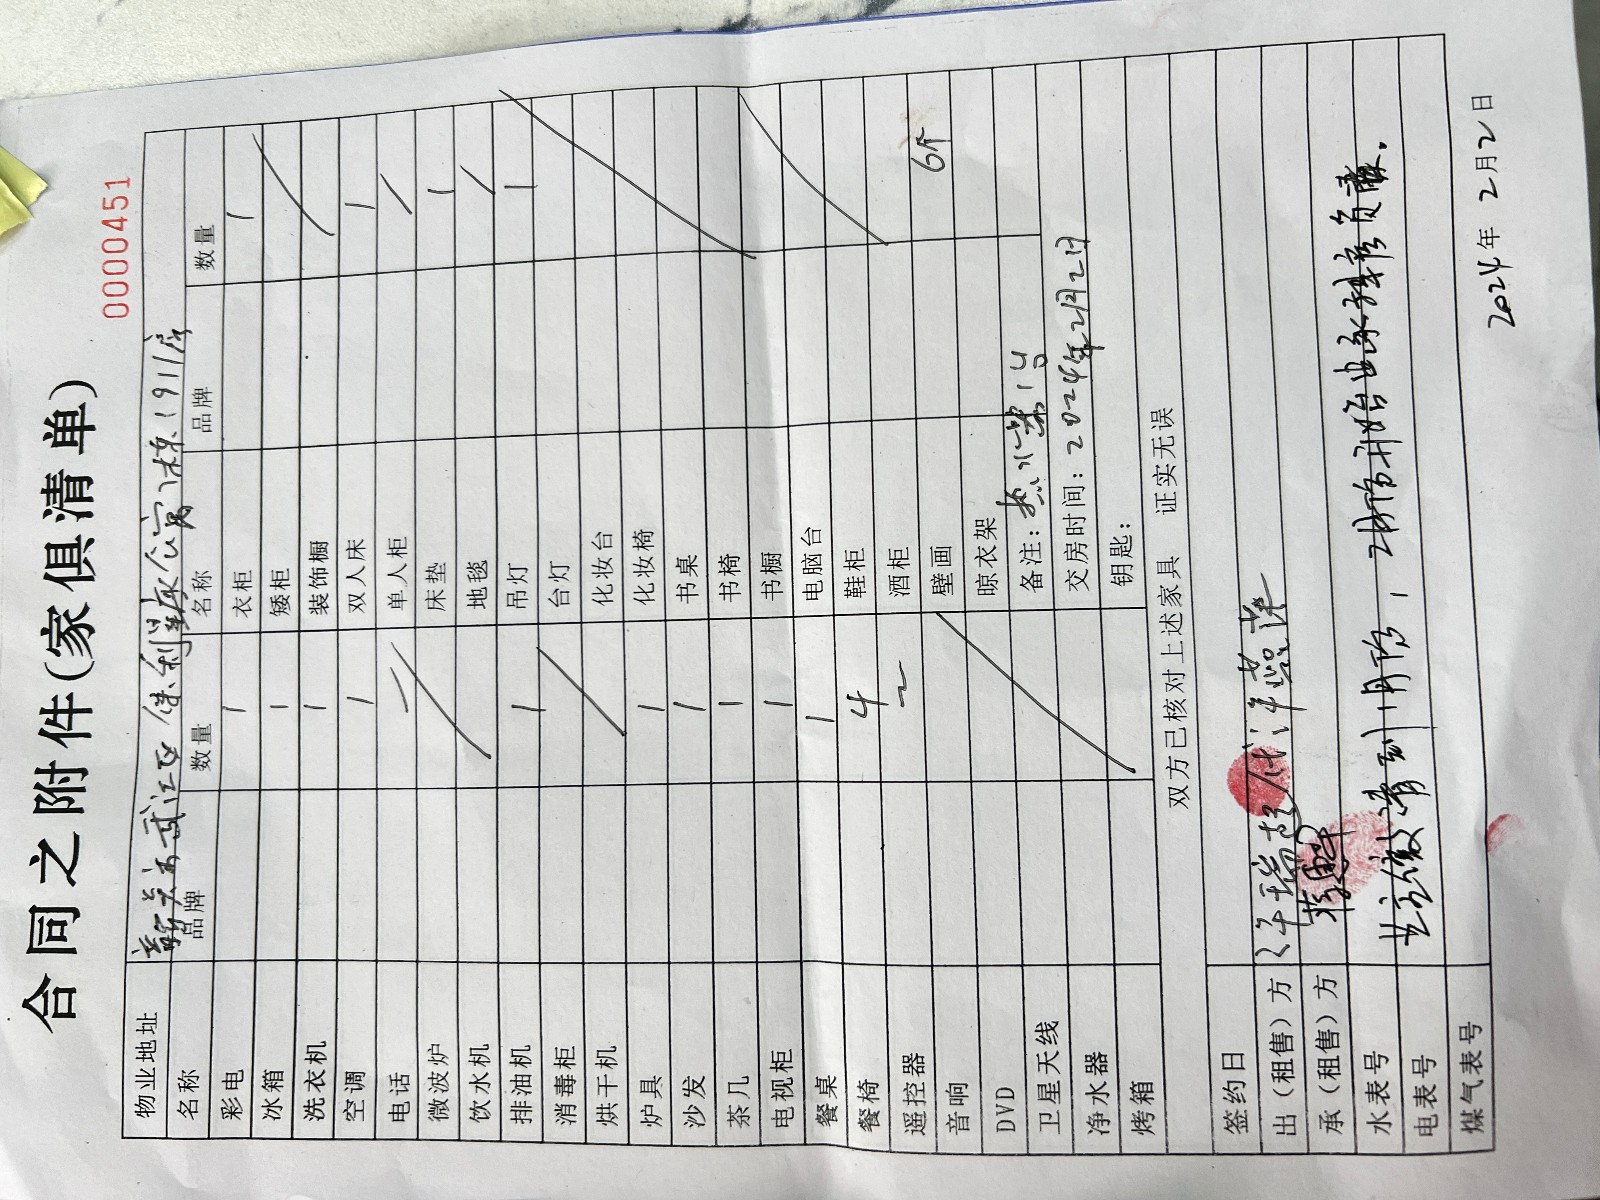 0000451
合同之附件(家俱清单)
物业地址 韶关市武江区保利 公寓 栋1911房
名称 品牌 数量 名称 品牌 数量
彩电 1 衣柜 1
冰箱 1 矮柜
洗衣机 1 装饰橱
空调 1 双人床 1
电话 单人柜
微波炉 床垫 1
饮水机 地毯
排油机 1 吊灯 1
消毒柜 台灯
烘干机 化妆台
炉具 1 化妆椅
沙发 1 书桌
茶几 1 书椅
电视柜 1 书橱
餐桌 1 电脑台
餐椅 4 鞋柜
遥控器 2 酒柜
音响 壁画 6个
DVD 晾衣架
卫星天线 备注: 热水 1台
净水器 交房时间: 2024年2月2日
烤箱 钥匙:
双方已核对上述家具 证实无误
签约日
出(租售)方
承(租售)方
水表号
电表号 业主缴清到1月份, 2月份开始由承租方负责.
煤气表号
2024年2月2日